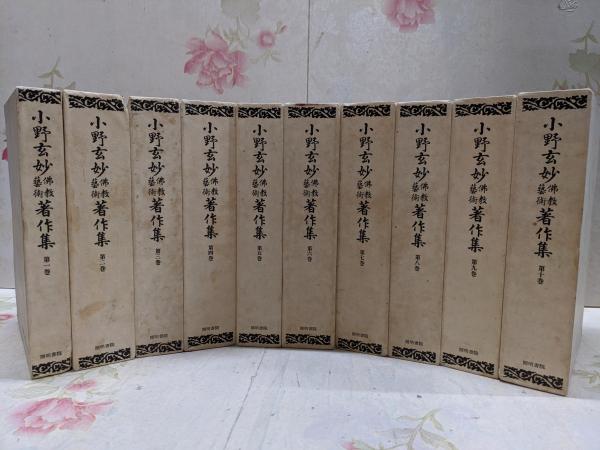 小野玄妙佛教藝術著作集 第一巻 開明書院
小野玄妙佛教藝術著作集 第二巻 開明書院
小野玄妙佛教藝術著作集 第三巻 開明書院
小野玄妙佛教藝術著作集 第四巻 開明書院
小野玄妙佛教藝術著作集 第五巻 開明書院
小野玄妙佛教藝術著作集 第六巻 開明書院
小野玄妙佛教藝術著作集 第七巻 開明書院
小野玄妙佛教藝術著作集 第八巻 開明書院
小野玄妙佛教藝術著作集 第九巻 開明書院
小野玄妙佛教藝術著作集 第十巻 開明書院